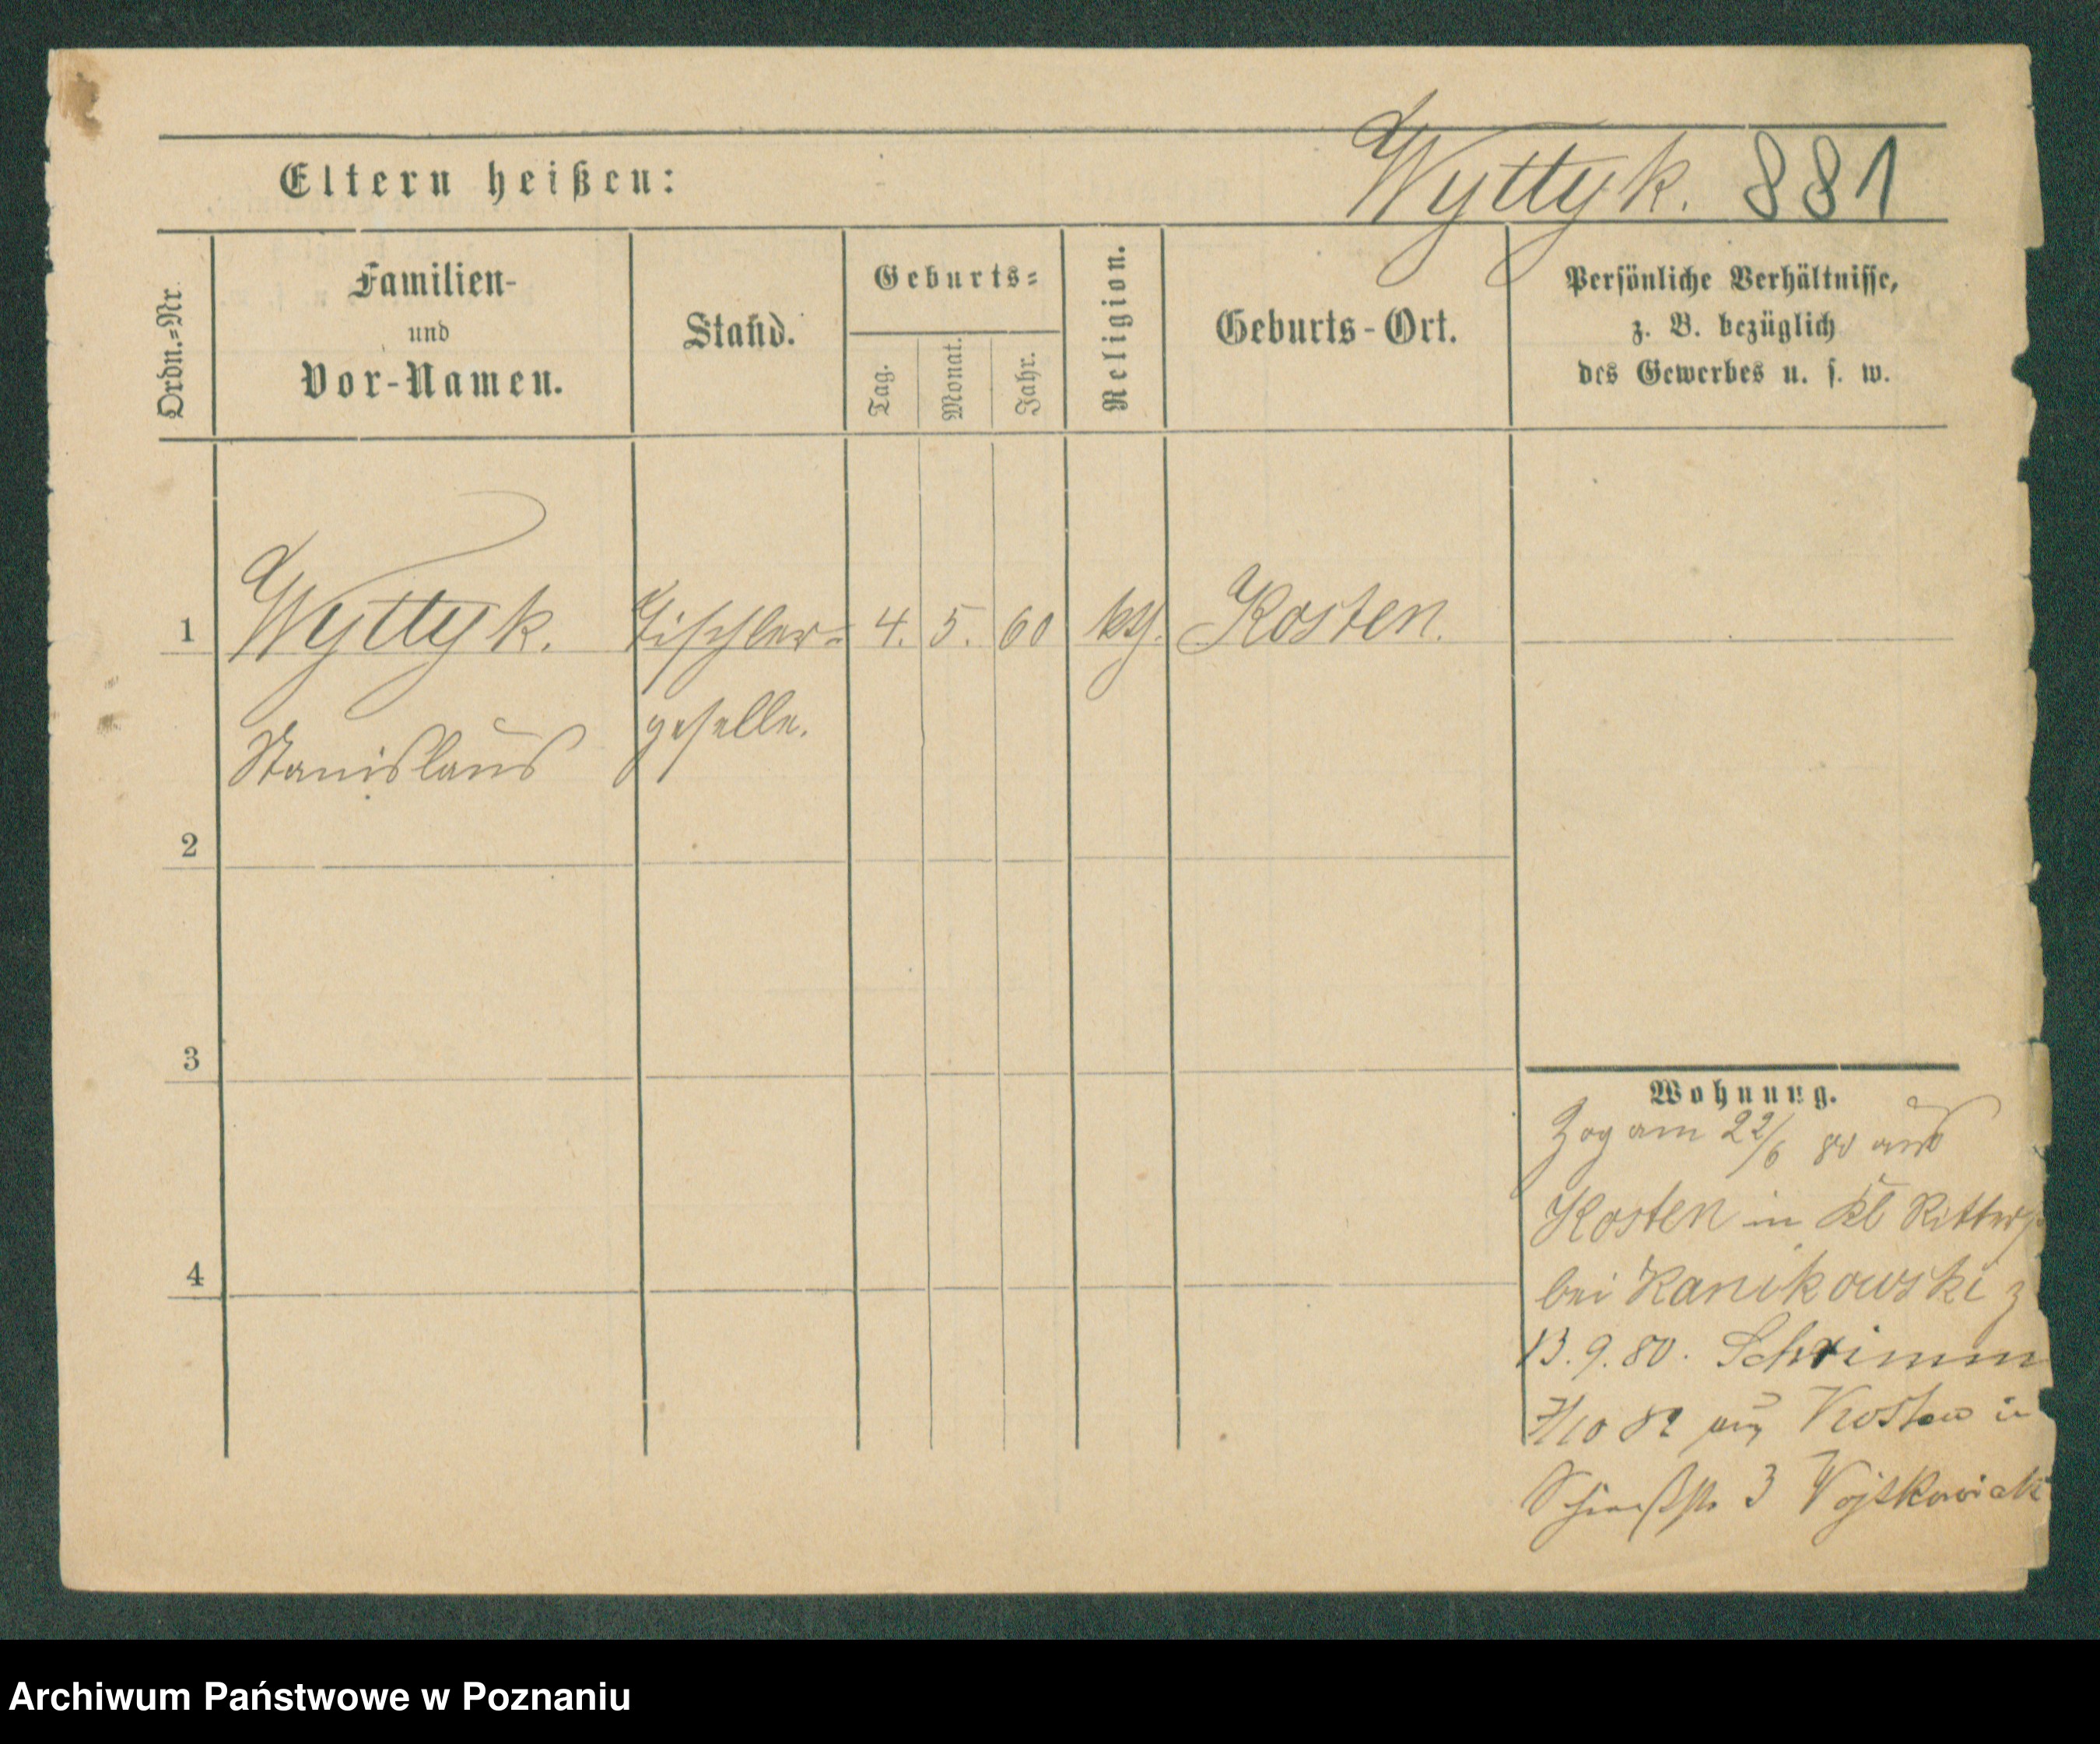 Eltern heißen:
Wyttyk. 881
Ordn.=Nr.
Familien-
und
Vor-Namen.
Stand.
Geburts=
Tag.
Monat.
Jahr.
Religion.
Geburts-Ort.
Persönliche Verhältnisse,
z. B. bezüglich
des Gewerbes u. s. w.
1 Wyttyk. Tischler= 4. 5. 60 kth. Kosten.
Stanislaus geselle.
2
3
4
Wohnung.
Zog am 22/6 80 aus
Kosten in Kl Ritterst
bei Kanikowski z
13.9.80. Schrimm
7/10 82 aus Kosten in
3 Wojtkowiak
Archiwum Państwowe w Poznaniu